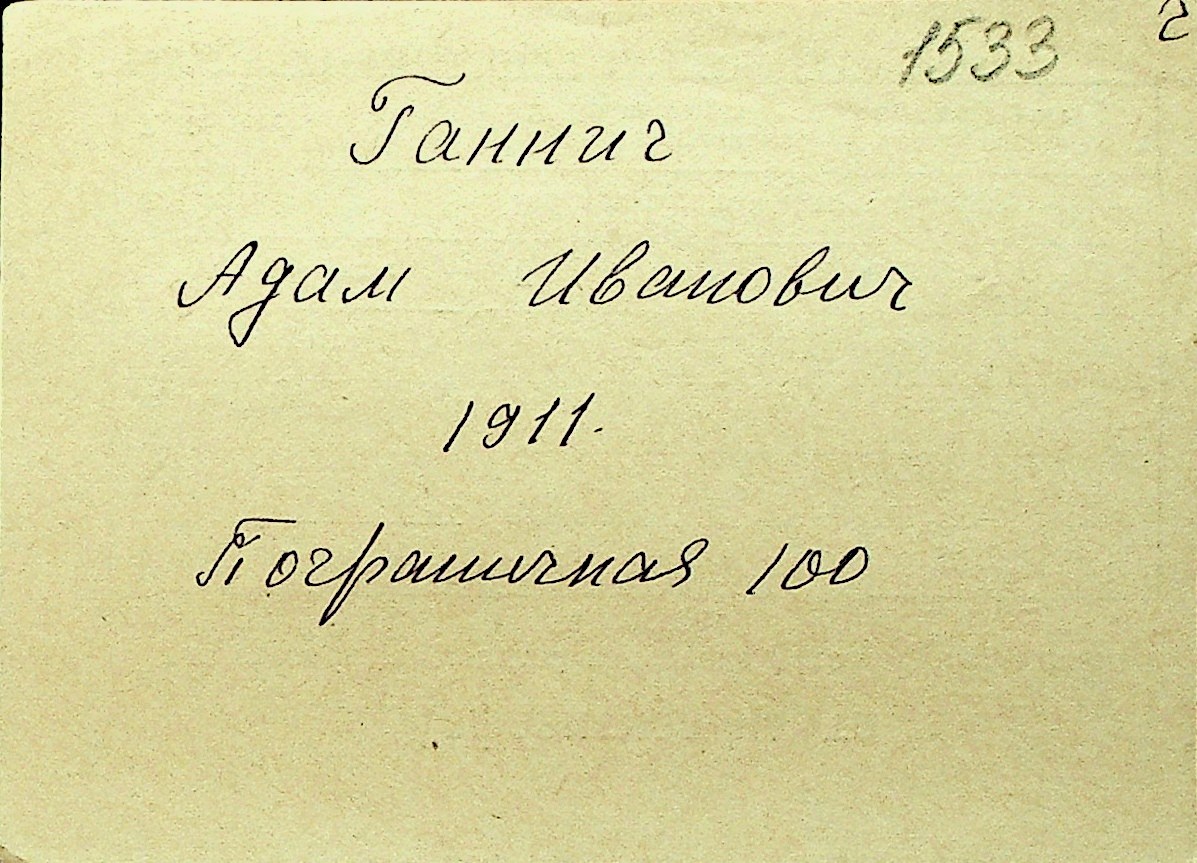 1533
Ганнич
Адам Иванович
1911.
Пограничная 100